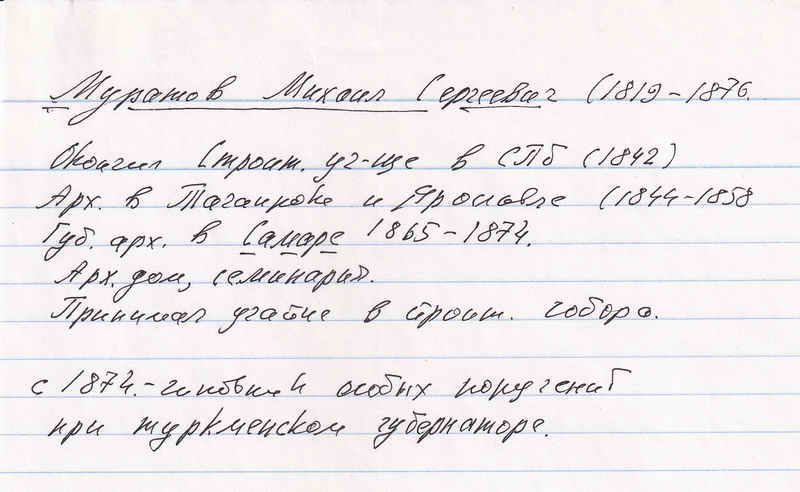 Муратов Михаил Сергеевич (1819-1876.
Окончил Строит. уч-ще в СПб (1842)
Арх. в Таганроке и Ярославле (1844-1858
Губ. арх. в Самаре 1865-1874.
Арх. дом, семинария.
Принимал участие в строит. собора.
с 1874.-чиновник особых поручений
при туркменском губернаторе.